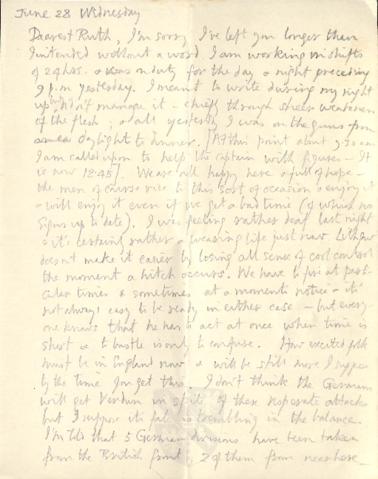 June 28 Wednesday
Dearest Ruth, I'm sorry I've left you longer than
I intended without a word. I am working in shifts
of 24 hrs. & was on duty for the day & night preceding
9 p.m yesterday. I meant to write during my night
up but didn't manage it - chiefly through sheer weakness
of the flesh; & all yesterday I was on the guns from
daylight to dinner. [At this point about 7-30 am
I am called upon to help the captain with figures - It
is now 12.45]. We are all happy here & full of hope -
the men of course rise to this sort of occasion & enjoy it
& will enjoy it even if we get a bad time (of which no
signs up to date). I was feeling rather deaf last night
& it's certainly rather a wearing life just now.
doesn't make it easier by losing all sense of cool control
the moment a hitch occurs. We have to fire at parti-
cular times & sometimes at a moment's notice - it's
not always easy to be ready in either case - but every-
one knows that he has to act at once when time is
short & to bustle is only to confuse. How excited folk
must be in England now & will be still more I suppose
by the time you get this. I don't think the Germans
will get Verdun in spite of these desperate attacks
but I suppose it's all trembling in the balance.
I'm told that 5 German divisions have been taken
from the British front, 2 of them from near here -